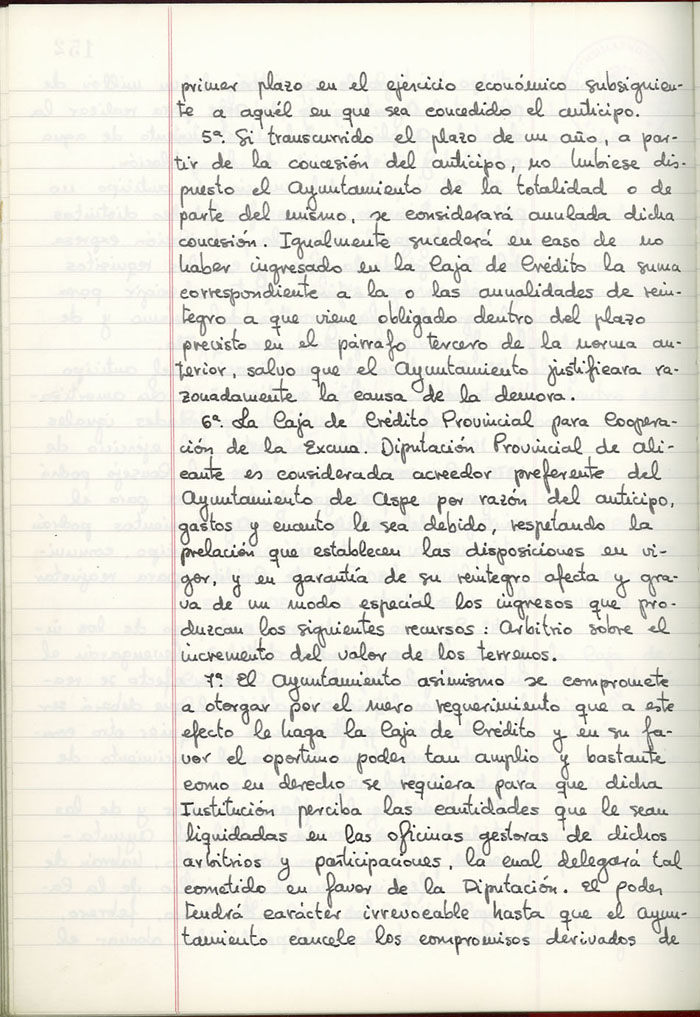 primer plazo en el ejercicio económico subsiguien-
te a aquél en que sea concedido el anticipo.
5ª. Si transcurrido el plazo de un año, a par-
tir de la concesión del anticipo, no hubiese dis-
puesto el Ayuntamiento de la totalidad o de
parte del mismo, se considerará anulada dicha
concesión. Igualmente sucederá en caso de no
haber ingresado en la Caja de Crédito la suma
correspondiente a la o las anualidades de rein-
tegro a que viene obligado dentro del plazo
previsto en el párrafo tercero de la norma an-
terior, salvo que el Ayuntamiento justificara ra-
zonadamente la causa de la demora.
6ª. La Caja de Crédito Provincial para Coopera-
ción de la Excma. Diputación Provincial de Ali-
cante es considerada acreedor preferente del
Ayuntamiento de Aspe por razón del anticipo,
gastos y cuanto le sea debido, respetando la
prelación que establecen las disposiciones en vi-
gor, y en garantía de su reintegro afecta y gra-
va de un modo especial los ingresos que pro-
duzcan los siguientes recursos: Arbitrio sobre el
incremento del valor de los terrenos.
7ª. El Ayuntamiento asimismo se compromete
a otorgar por el mero requerimiento que a este
efecto le haga la Caja de Crédito y en su fa-
vor el oportuno poder tan amplio y bastante
como en derecho se requiera para que dicha
Institución perciba las cantidades que le sean
liquidadas en las oficinas gestoras de dichos
arbitrios y participaciones, la cual delegará tal
cometido en favor de la Diputación. El poder
tendrá carácter irrevocable hasta que el Ayun-
tamiento cancele los compromisos derivados de